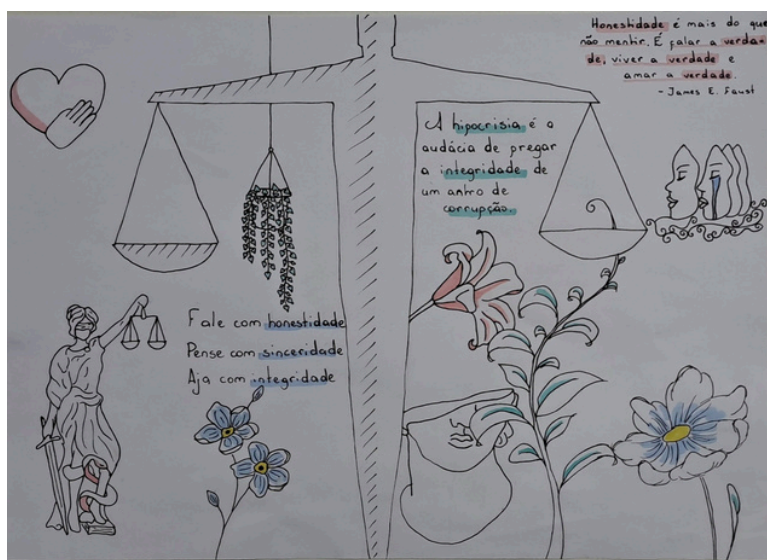 Honestidade é mais do que
não mentir. É falar a verda-
de, viver a verdade e
amar a verdade.
- James E. Faust
A hipocrisia é a
audácia de pregar
a integridade de
um antro de
corrupção.
Fale com honestidade
Pense com sinceridade
Aja com integridade